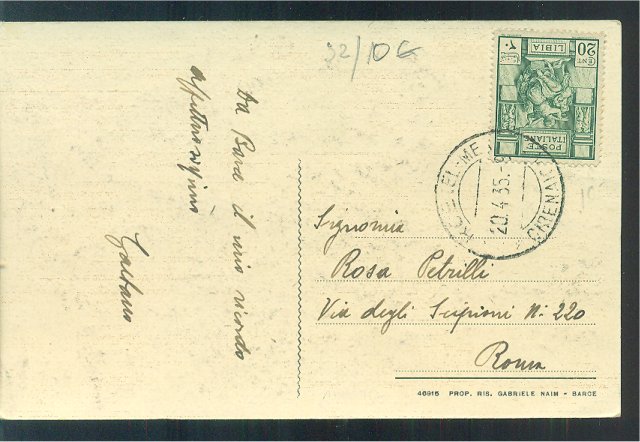 32/10 €
20 CENT
LIBIA
POSTE
ITALIANE
EL-ME
CIRENAICA
20.4.35.
Da Barce il mio ricordo
affettuosissimo
Gaetano
Signorina
Rosa Petrilli
Via degli Scipioni N. 220
Roma
46915 PROP. RIS. GABRIELE NAIM - BARCE